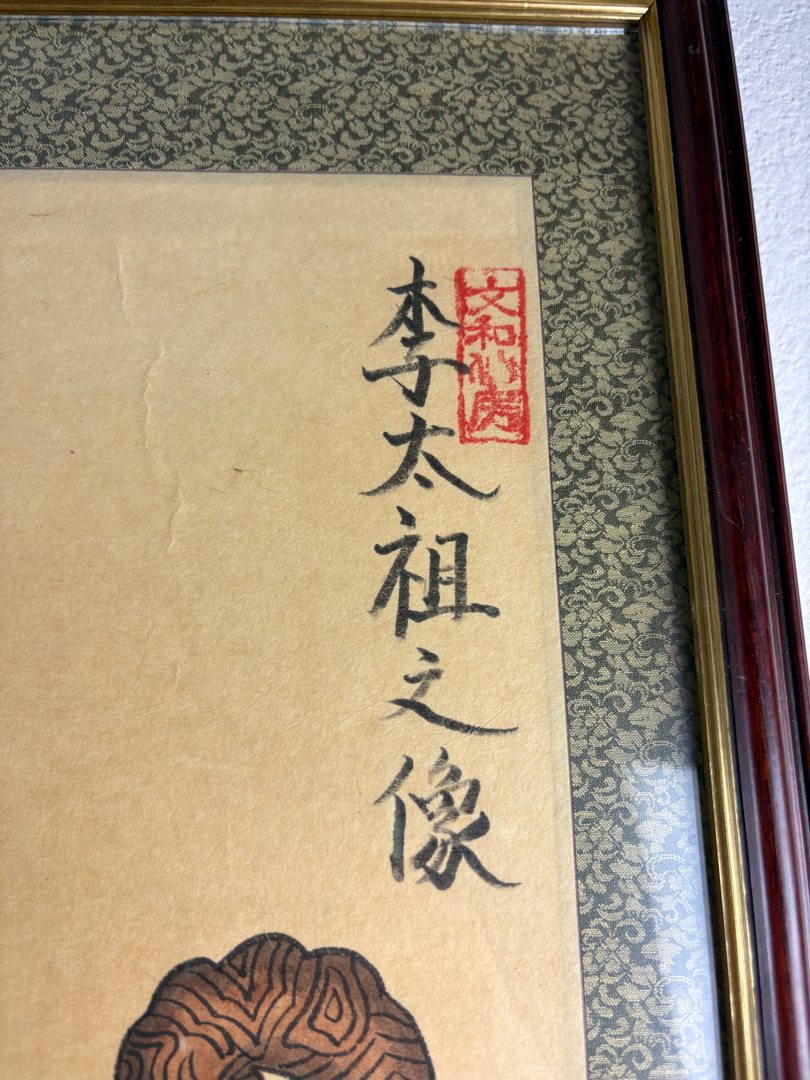 李太祖之像
文和心房